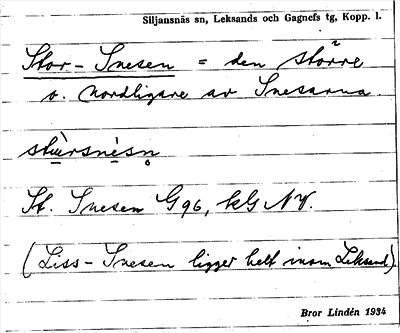 Siljansnäs sn, Leksands och Gagnefs tg, Kopp. l.
Stor-Snesen = den större
o. nordligare av Snesarna.
stùrsnèsn̥
St. Snesen G96, kG NV.
(Liss-Snesen ligger helt inom Leksand)
Bror Lindén 1934